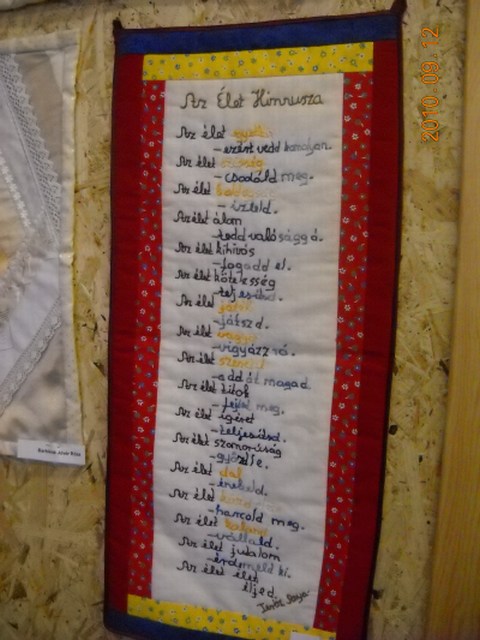 Az Élet Himnusza
Az élet egyetlen
– ezért vedd komolyan.
Az élet szépség
– csodáld meg.
Az élet
– ízleld.
Az élet álom
– tedd valósággá.
Az élet kihívás
– fogadd el.
Az élet kötelesség
– teljesítsd.
Az élet játék
– játszd.
Az élet vagyon
– vigyázz rá.
Az élet szeretet
– add át magad.
Az élet titok
– fejtsd meg.
Az élet ígéret
– teljesítsd.
Az élet szomorúság
– győzd le.
Az élet dal
– énekeld.
Az élet küzdelem
– harcold meg.
Az élet kaland
– vállald.
Az élet jutalom
– érdemeld ki.
Az élet élet
éljed.
2010 03 12